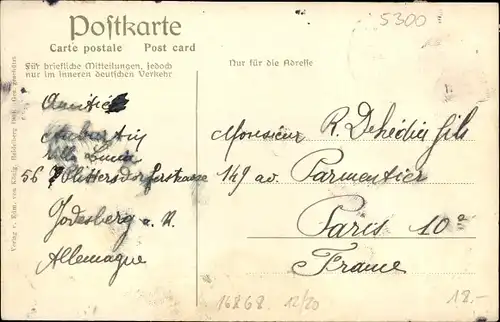 5300
Postkarte
Carte postale Post card
Für briefliche Mitteilungen, jedoch
nur im inneren deutschen Verkehr
Nur für die Adresse
Villa Lucia
56 Plittersdorferstrasse
Godesberg a. R.
Allemagne
Monsieur R. Dehédin fils
149 av. Parmentier
Paris 10e
France
16868 12/20
18.-